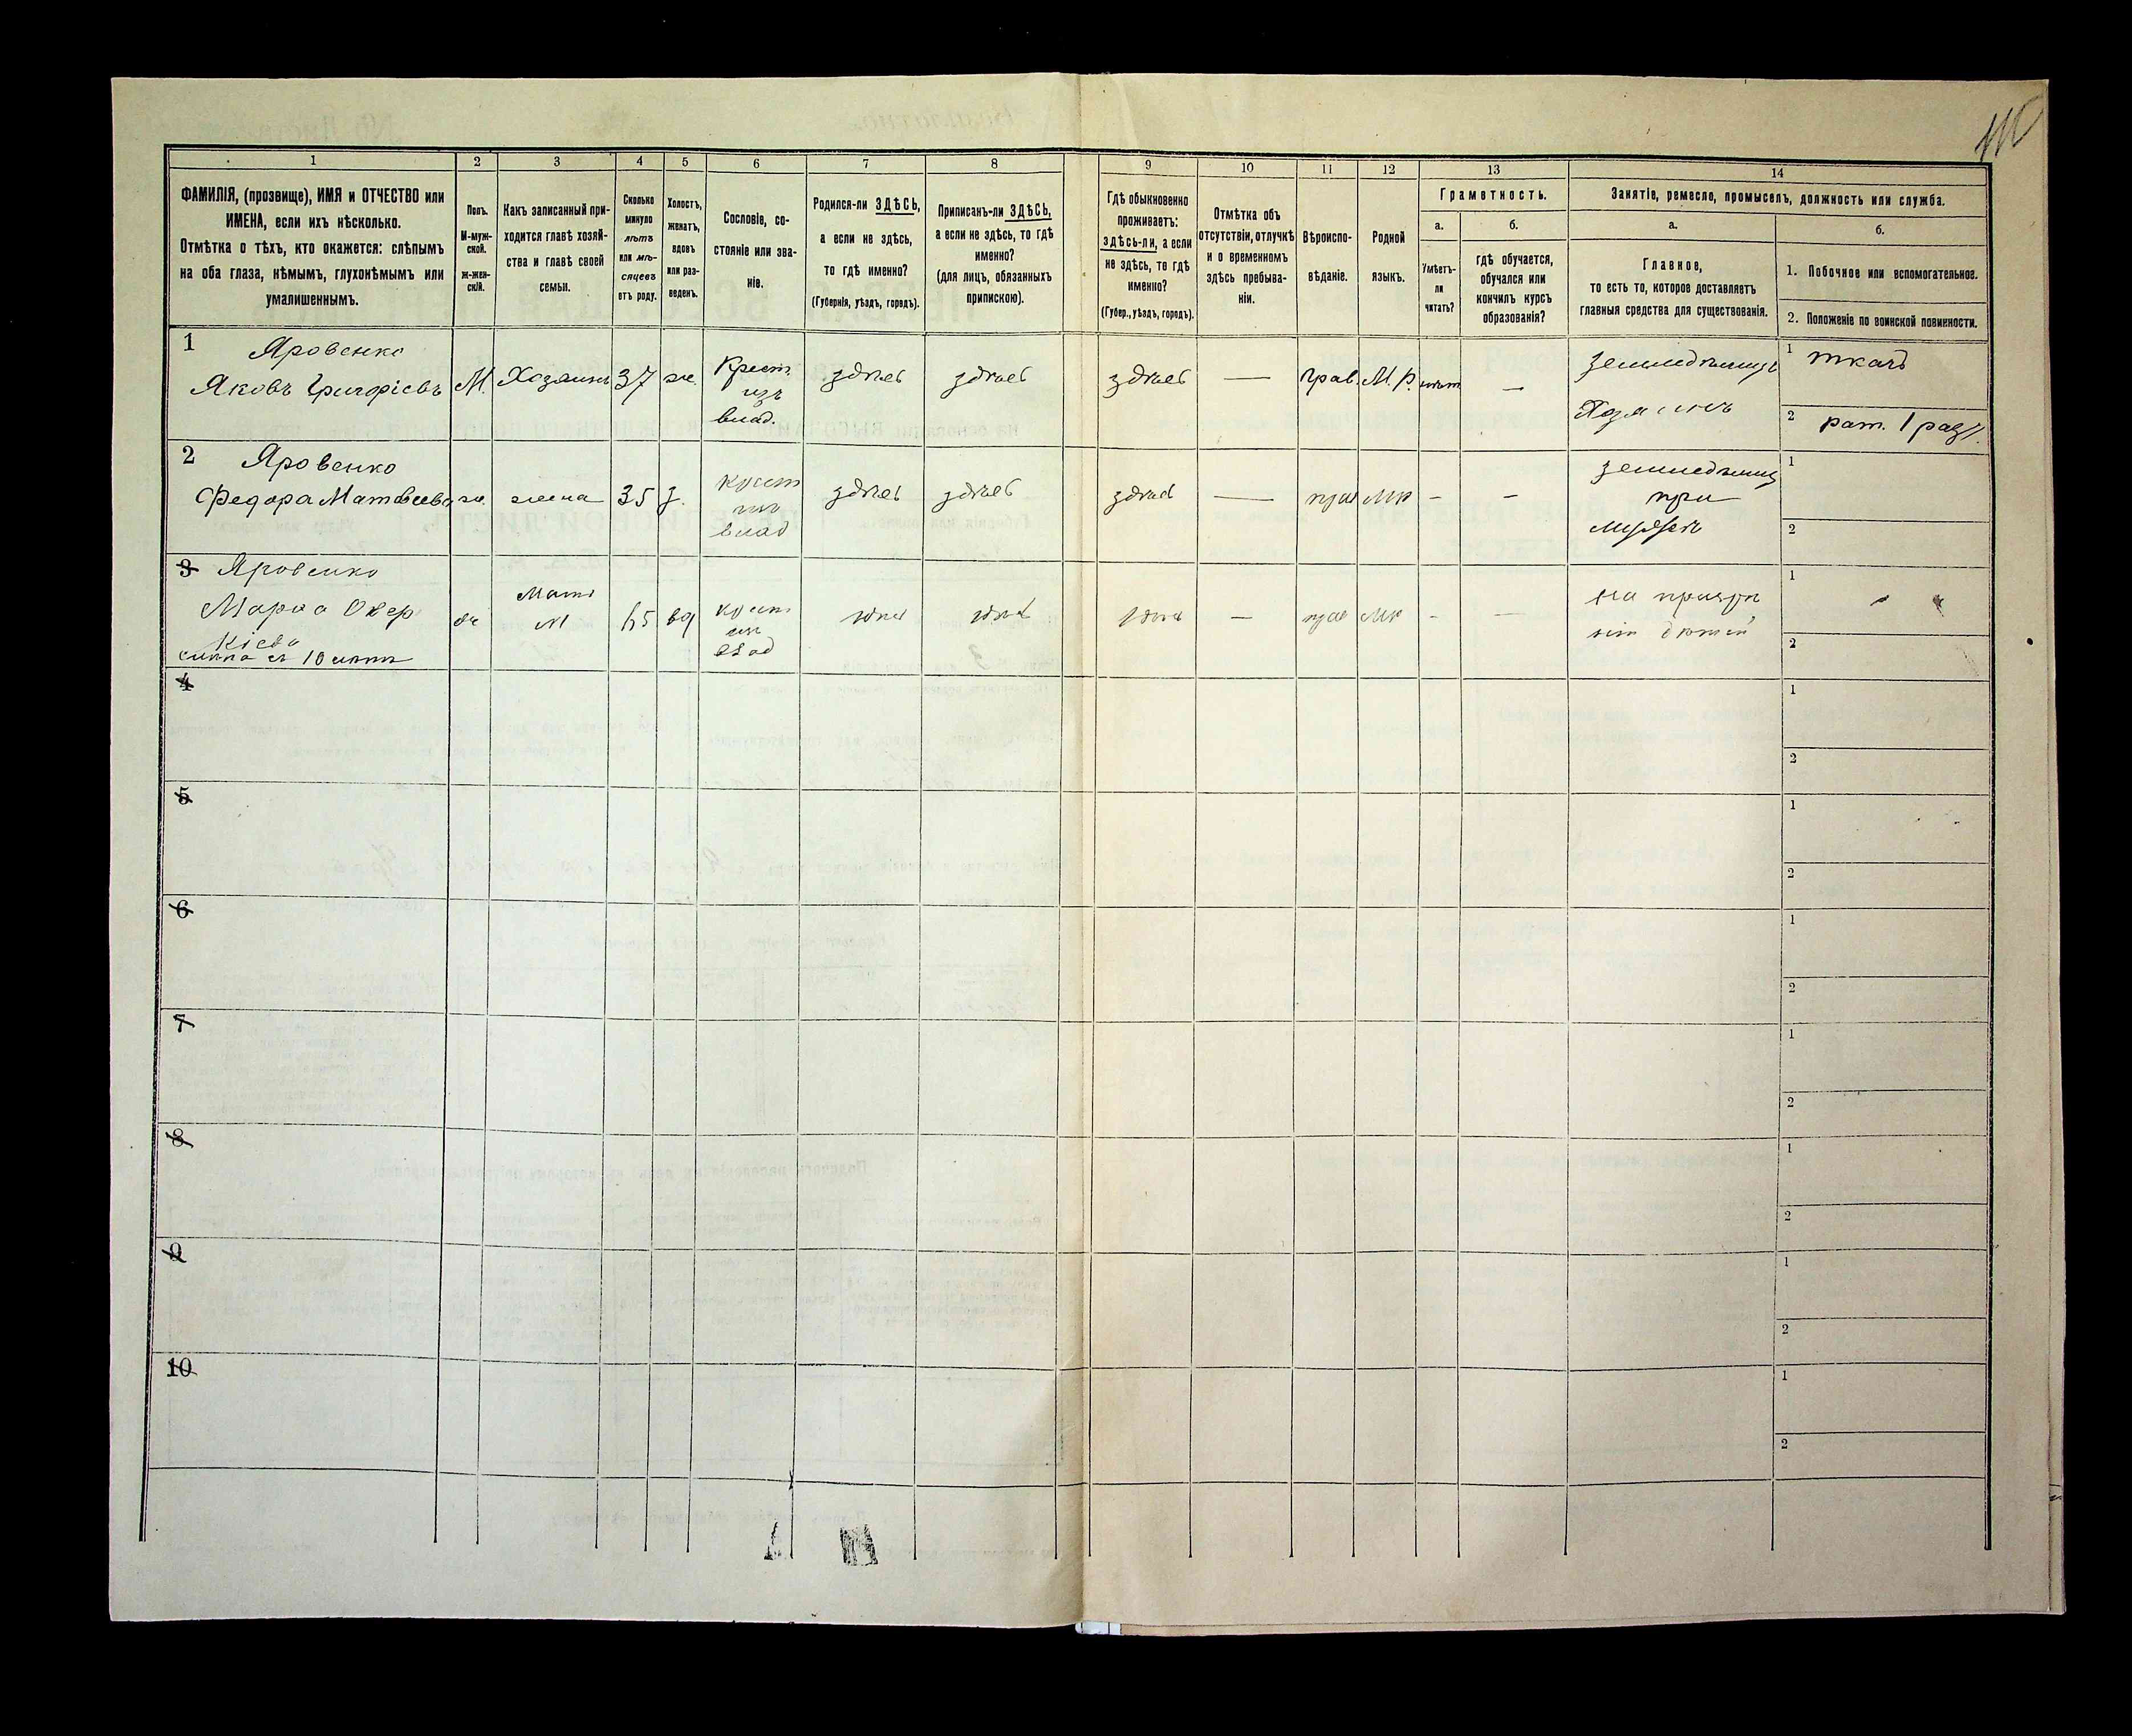 1 2 3 4 5 6 7 8 9 10 11 12 13 14
ФАМИЛІЯ, (прозвище), ИМЯ и ОТЧЕСТВО или
ИМЕНА, если ихъ нѣсколько.
Отмѣтка о тѣхъ, кто окажется: слѣпымъ
на оба глаза, нѣмымъ, глухонѣмымъ или
умалишеннымъ.
Полъ.
М-муж-
ской.
ж-жен-
скій.
Какъ записанный при-
ходится главѣ хозяй-
ства и главѣ своей
семьи.
Сколько
минуло
лѣтъ
или мѣ-
сяцевъ
отъ роду.
Холостъ,
женатъ,
вдовъ
или раз-
веденъ.
Сословіе, со-
стояніе или зва-
ніе.
Родился-ли ЗДѢСЬ,
а если не здѣсь,
то гдѣ именно?
(Губернія, уѣздъ, городъ).
Приписанъ-ли ЗДѢСЬ,
а если не здѣсь, то гдѣ
именно?
(для лицъ, обязанныхъ
припискою).
Гдѣ обыкновенно
проживаетъ:
здѣсь-ли, а если
не здѣсь, то гдѣ
именно?
(Губер., уѣздъ, городъ).
Отмѣтка объ
отсутствіи, отлучкѣ
и о временномъ
здѣсь пребыва-
ніи.
Вѣроиспо-
вѣданіе.
Родной
языкъ.
Грамотность.
а.
Умѣетъ-
ли
читать?
б.
гдѣ обучается,
обучался или
кончилъ курсъ
образованія?
Занятіе, ремесло, промыселъ, должность или служба.
а.
Главное,
то есть то, которое доставляетъ
главныя средства для существованія.
б.
1. Побочное или вспомогательное.
2. Положеніе по воинской повинности.
1 Яровенко
Яковъ Григоріевъ М. Хозяинъ 37 ж. Крест.
изъ
влад.
здѣсь здѣсь здѣсь — прав. М.Р. нѣт —
земледѣлецъ
Хозяинъ
1 ткачъ
2 рат. 1 разр.
2 Яровенко
Федора Матвеева ж. жена 35 з. крест
изъ
влад
здѣсь здѣсь здѣсь — прав МР - -
земледѣлец
при
мужѣ
1
2
3 Яровенко
Мариа
ж мать
М 65 вд крест
изъ
влад
здѣсь здѣсь здѣсь — прав МР - —
на
дѣтей
1
2
4 1
2
5 1
2
6 1
2
7 1
2
8 1
2
9 1
2
10 1
2